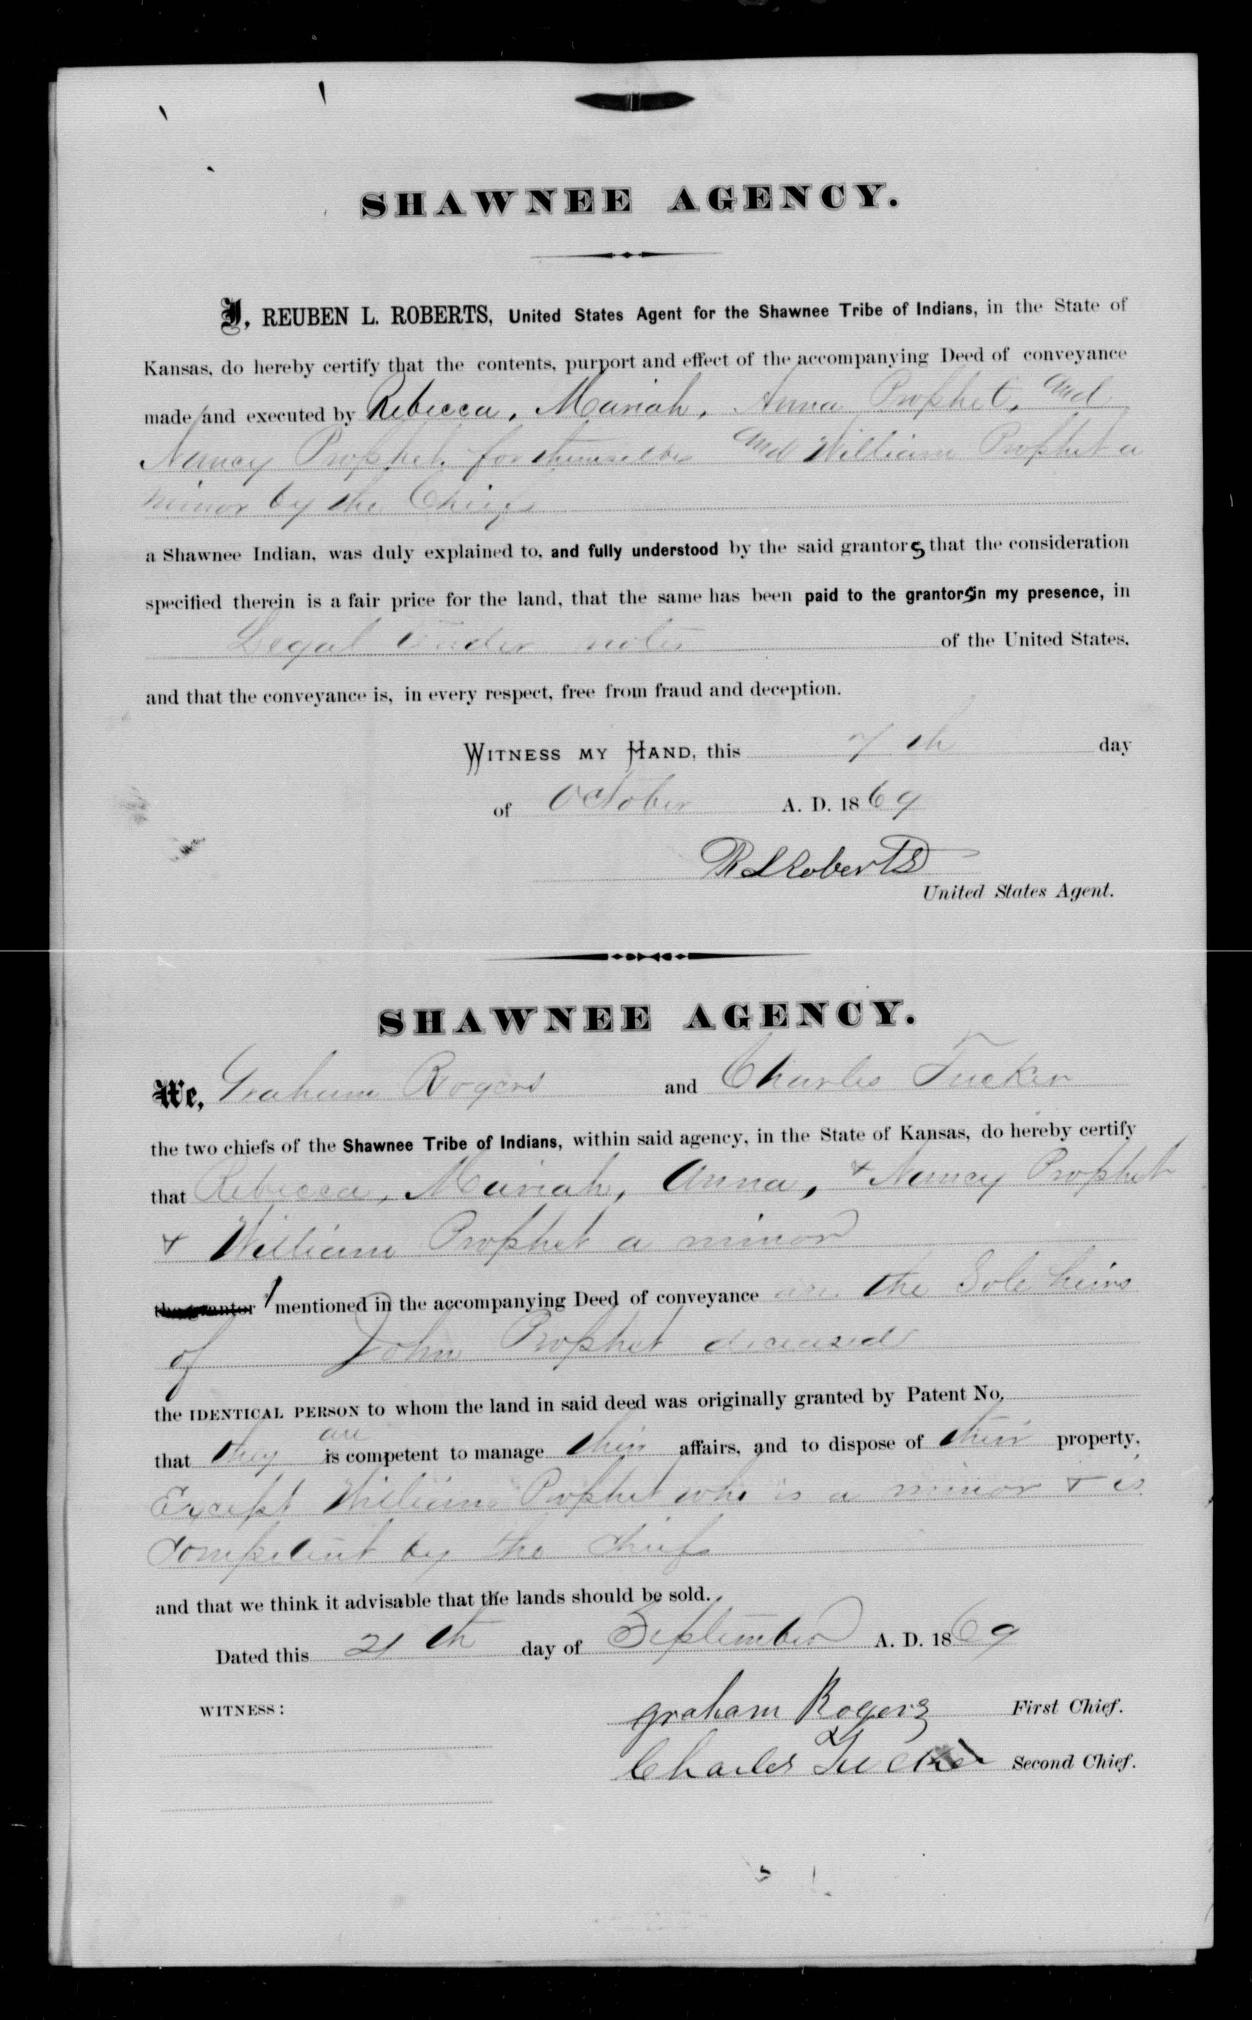 SHAWNEE AGENCY.
I, REUBEN L. ROBERTS, United States Agent for the Shawnee Tribe of Indians, in the State of
Kansas, do hereby certify that the contents, purport and effect of the accompanying Deed of conveyance
made and executed by Rebecca, Mariah, Anna Prophet, and
Nancy Prophet, for themselves and William Prophet a
minor by the Chiefs
a Shawnee Indian, was duly explained to, and fully understood by the said grantors that the consideration
specified therein is a fair price for the land, that the same has been paid to the grantors in my presence, in
Legal tender notes of the United States,
and that the conveyance is, in every respect, free from fraud and deception.
WITNESS MY HAND, this 7th day
of October A. D. 1869
R L Roberts
United States Agent.
SHAWNEE AGENCY.
We, Graham Rogers and Charles Tucker
the two chiefs of the Shawnee Tribe of Indians, within said agency, in the State of Kansas, do hereby certify
that Rebecca, Mariah, Anna, & Nancy Prophet
& William Prophet a minor
the grantor mentioned in the accompanying Deed of conveyance are the Sole heirs
of John Prophet deceased
the IDENTICAL PERSON to whom the land in said deed was originally granted by Patent No.
are
that they is competent to manage their affairs, and to dispose of their property,
Except William Prophet who is a minor & is
competent by the chiefs
and that we think it advisable that the lands should be sold.
Dated this 21th day of September A. D. 1869
WITNESS: graham Rogers First Chief.
Charles Tucker Second Chief.